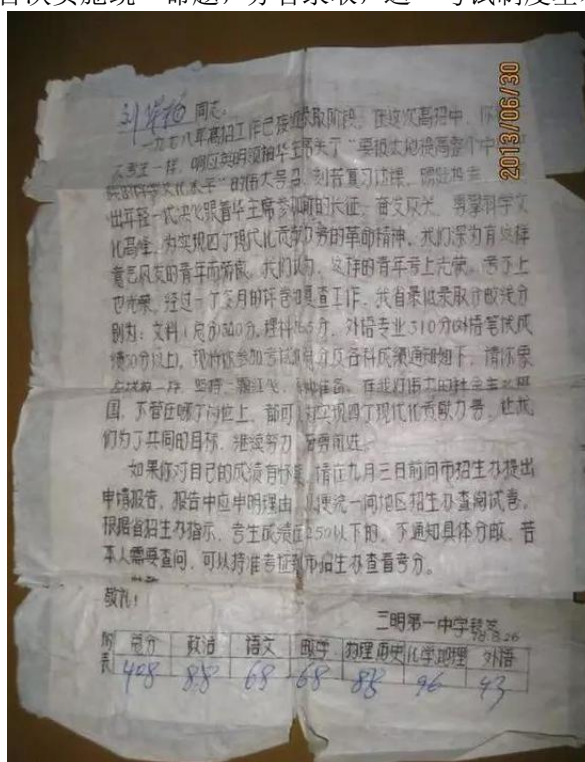 2013/06/30
同志:
一九七八年高招工作已接近录取阶段。在这次高招中,你
一样,响应英明领袖华主席关于“要极大地提高整个中
族的科学文化水平”的伟大号召,刻苦复习功课,踊跃报考,
出年轻一代决心跟着华主席参加新的长征,奋发攻关,勇攀科学文
化高峰,为实现四个现代化贡献力量的革命精神。我们深为有这样
意气风发的青年而骄傲。我们认为,这样的青年考上光荣,考不上
也光荣。经过一个多月的评卷和复查工作,我省最低录取分数线分
别为:文科(总分)320分,理科 分,外语专业310分(外语笔试成
绩50分以上)。现将你参加考试的总分及各科成绩通知如下,请你象
一样,坚持一颗红心,准备,在我们伟大的社会主义祖
国,不管在哪个岗位上,都可以为实现四个现代化贡献力量。让我
们为了共同的目标,继续努力,奋勇前进。
如果你对自己的成绩有怀疑,请在九月三日前向市招生办提出
申请报告,报告中应申明理由,以便统一向地区招生办查阅试卷。
根据省招生办指示,考生成绩在250以下的,不通知具体分数,若
本人需要查问,可以持准考证到市招生办查看考分。
敬礼!
三明第一中学
78.8.26
附表 总分 政治 语文 数学 物理历史 化学地理 外语
408 88 68 68 88 96 43